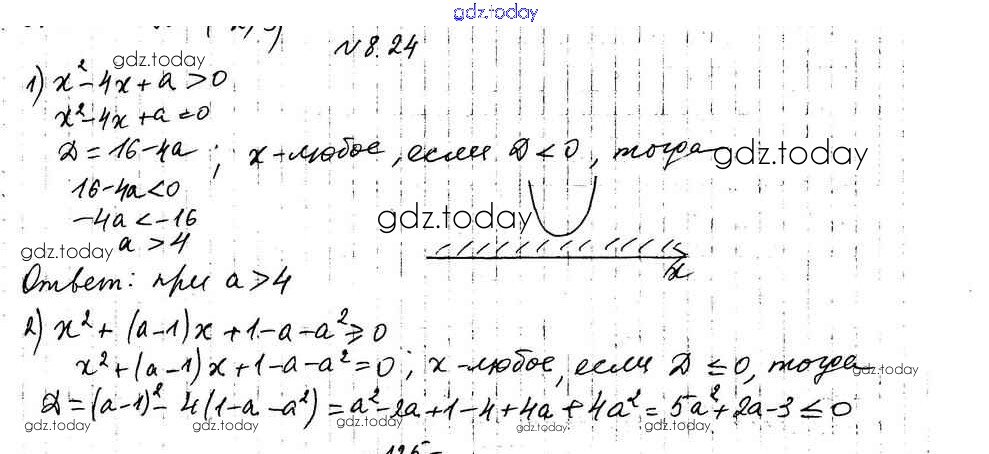 gdz.today
№8.24
gdz.today
1) x² - 4x + a > 0
x² - 4x + a = 0
D = 16 - 4a ; x - любое, если D < 0, тогда gdz.today
16 - 4a < 0
-4a < -16 gdz.today
gdz.today a > 4
x
Ответ: при a > 4
2) x² + (a-1)x + 1 - a - a² ≥ 0
x² + (a-1)x + 1 - a - a² = 0; x - любое, если D ≤ 0, тогда gdz.today
D = (a-1)² - 4(1 - a - a²) = a² - 2a + 1 - 4 + 4a + 4a² = 5a² + 2a - 3 ≤ 0
gdz.today gdz.today gdz.today gdz.today gdz.today